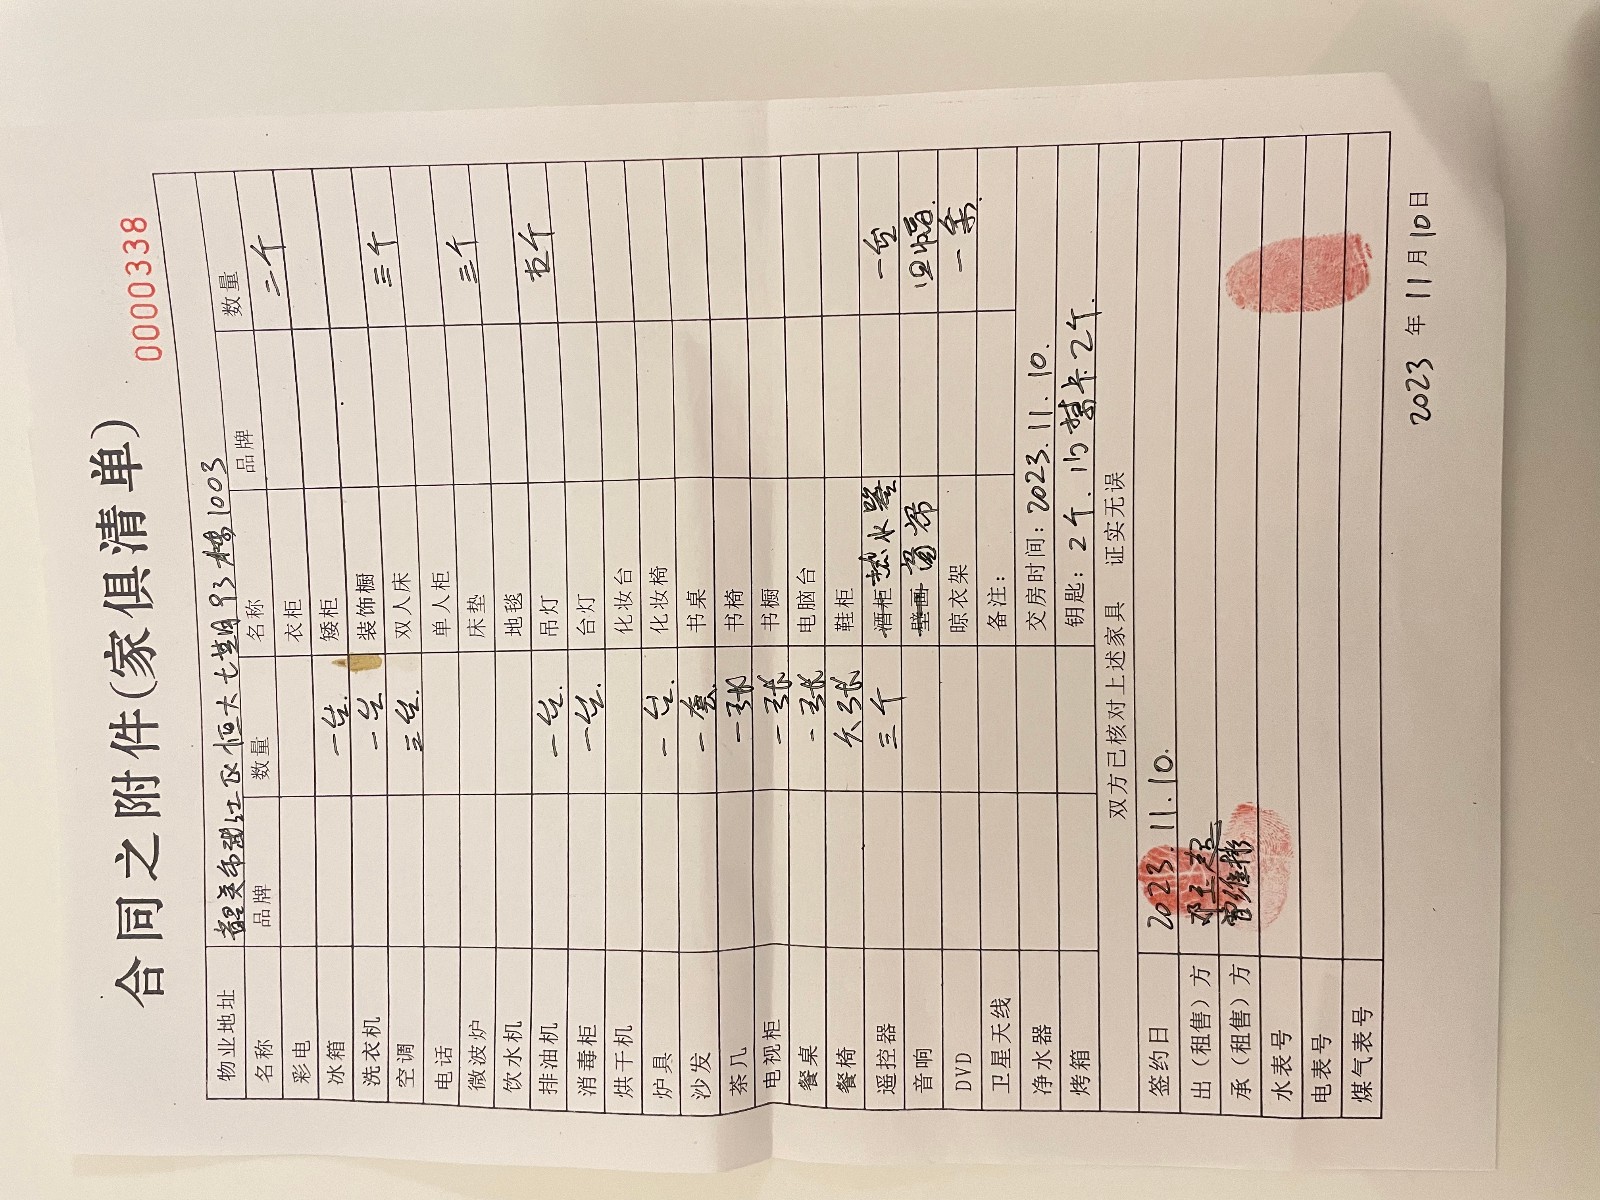 合同之附件(家俱清单)
0000338
物业地址 韶关市武江区恒大七 93栋1003
名称 品牌 数量 名称 品牌 数量
彩电 衣柜 二个
冰箱 一台. 矮柜
洗衣机 一台 装饰橱
空调 三台. 双人床 三个
电话 单人柜
微波炉 床垫 三个
饮水机 地毯
排油机 一台. 吊灯 五个
消毒柜 一台. 台灯
烘干机 化妆台
炉具 一台. 化妆椅
沙发 一套. 书桌
茶几 一张 书椅
电视柜 一张 书橱
餐桌 一张 电脑台
餐椅 六张 鞋柜
遥控器 三个 酒柜 热水器 一台
音响 壁画 窗帘 四幅.
DVD 晾衣架 一条.
卫星天线 备注:
净水器 交房时间: 2023.11.10.
烤箱 钥匙: 2个. 门禁卡2个.
双方已核对上述家具 证实无误
签约日 2023.11.10.
出(租售)方 邓玉超
承(租售)方 曾维彬
水表号
电表号
煤气表号
2023 年 11 月 10 日